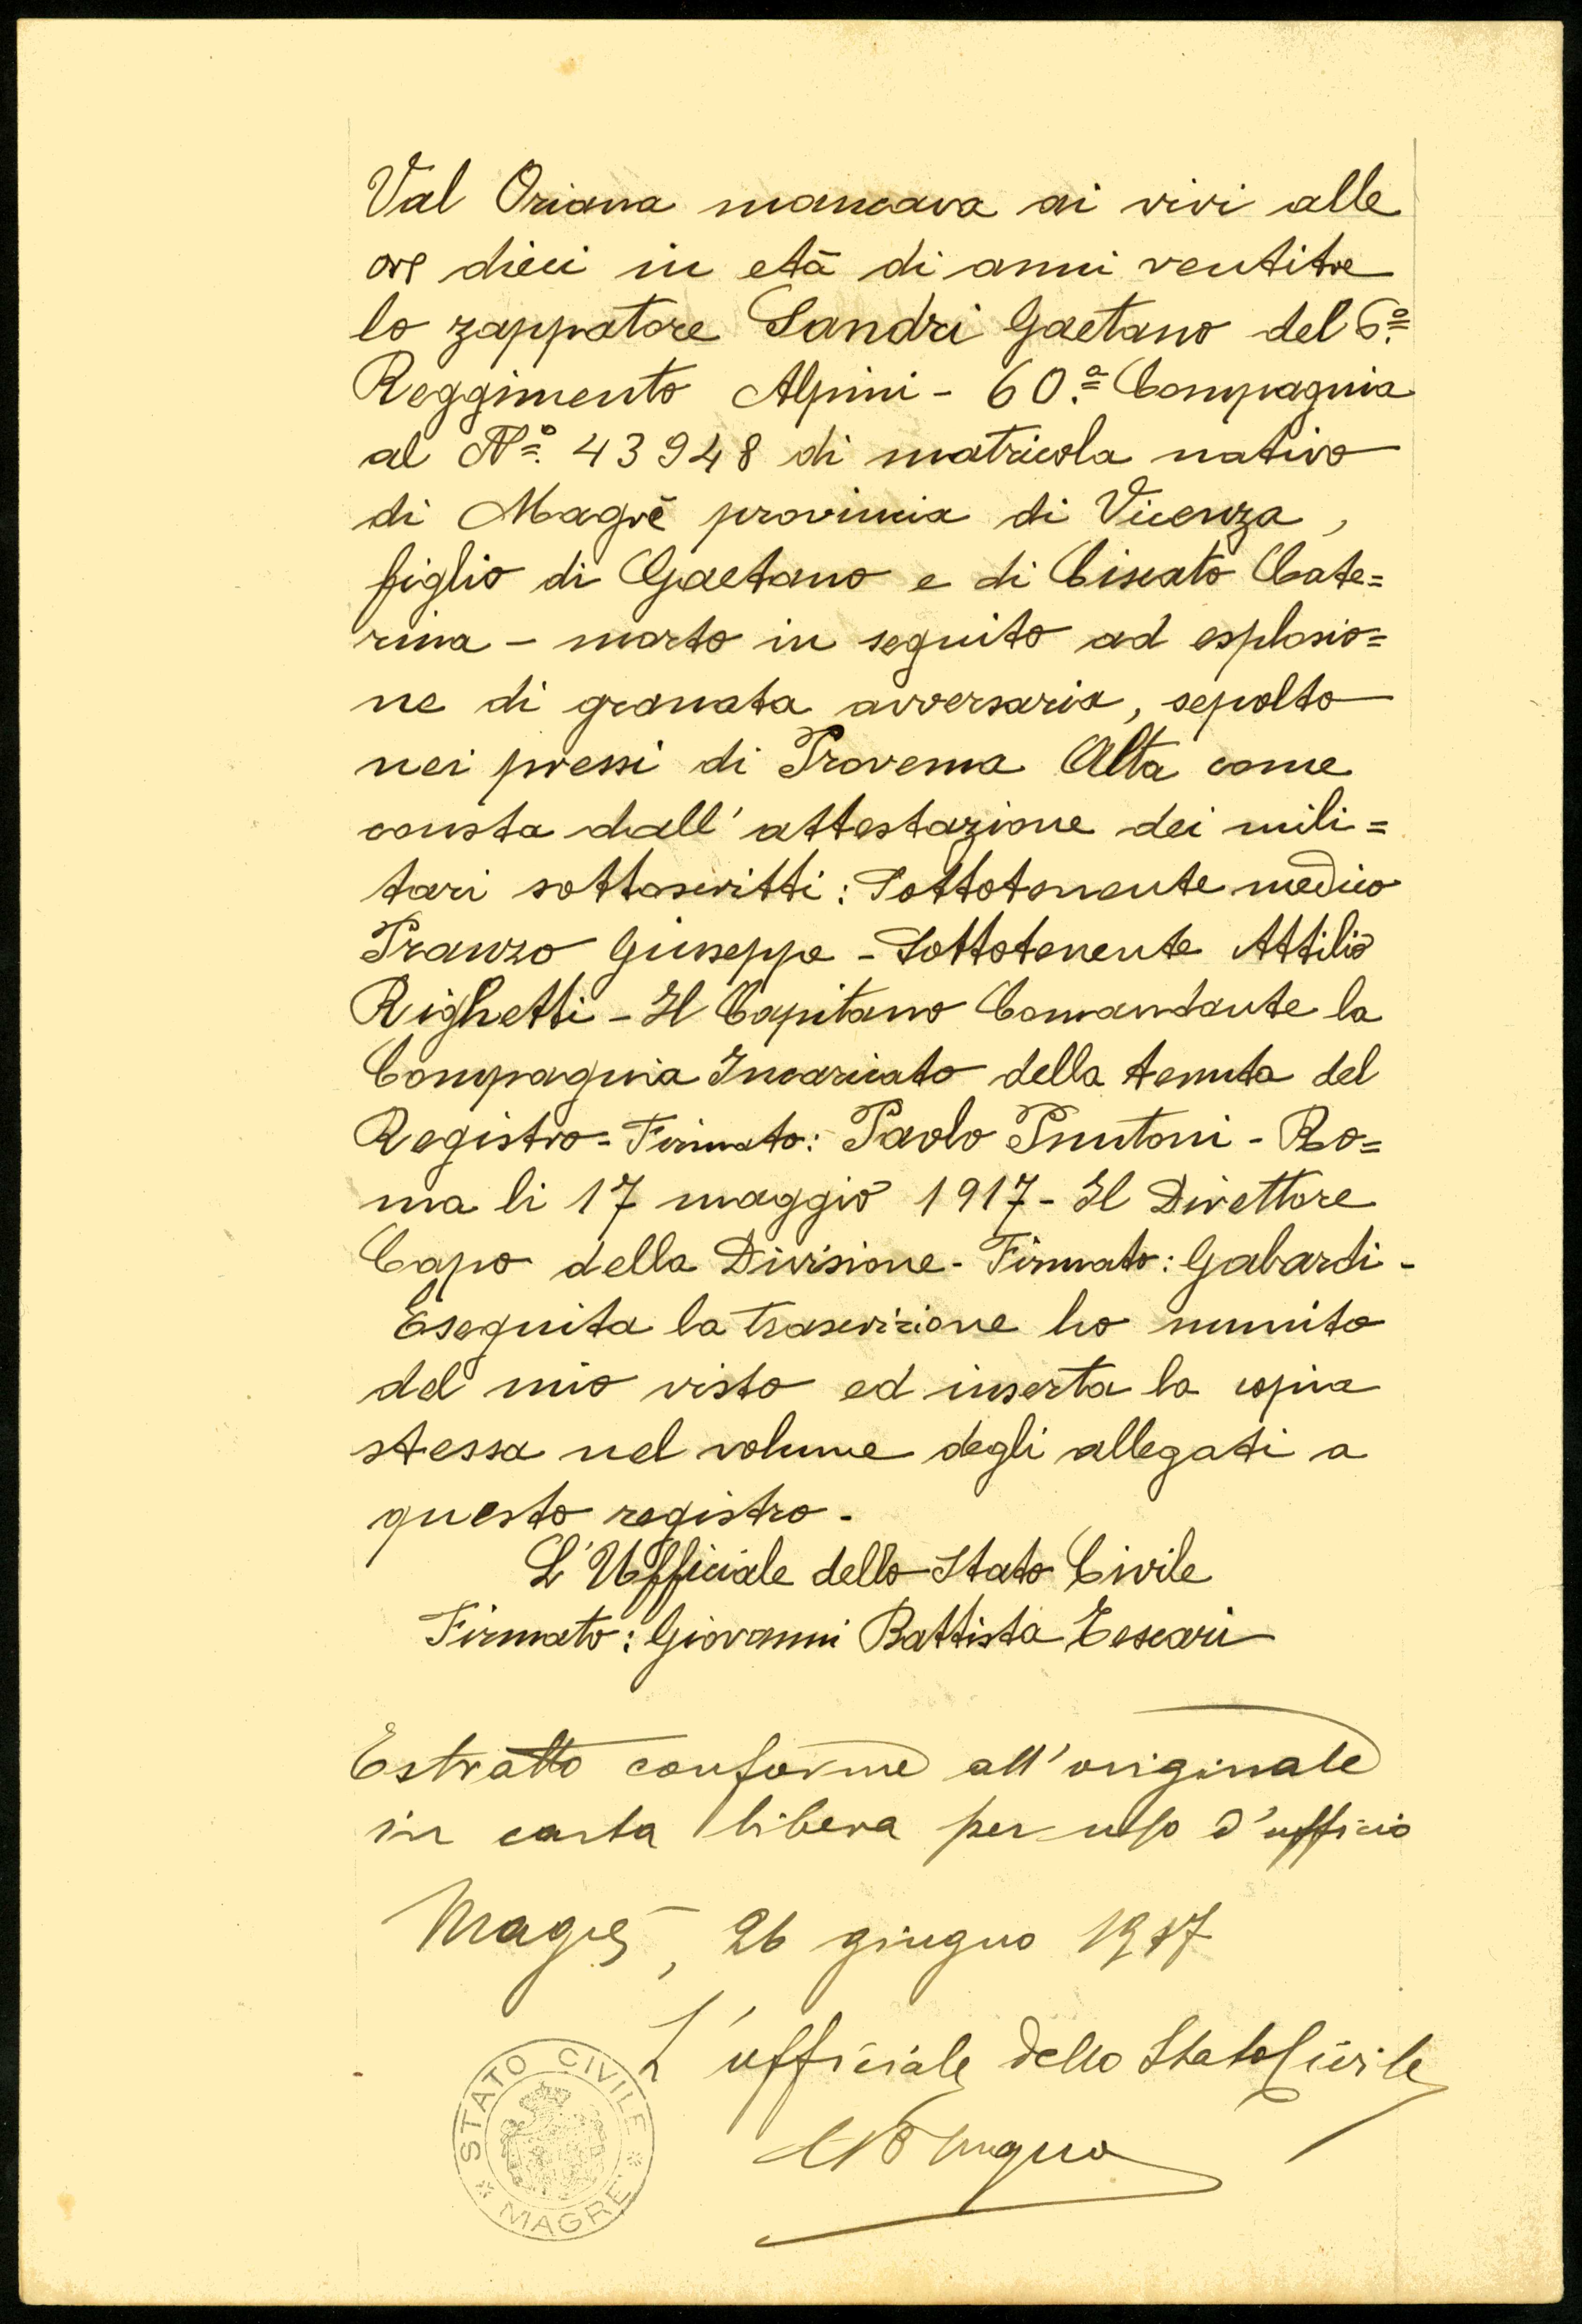 Val Oriana mancava ai vivi alle
ore dieci in età di anni ventitre
lo zappatore Sandri Gaetano del 6º
Reggimento Alpini - 60.ª Compagnia
al Nº. 43948 di matricola nativo
di Magrè provincia di Vicenza,
figlio di Gaetano e di Ciscato Cate=
rina - morto in seguito ad esplosio=
ne di granata avversaria, sepolto
nei pressi di Proverna Alta come
consta dall'attestazione dei mili=
tari sottoscritti: Sottotenente medico
Franzo Giuseppe - Sottotenente Attilio
Righetti - Il Capitano Comandante la
Compagnia Incaricato della tenuta del
Registro = Firmato: Paolo Puntoni - Ro=
ma li 17 maggio 1917 - Il Direttore
Capo della Divisione - Firmato: Gabardi -
Eseguita la trascrizione ho munito
del mio visto ed inserta la copia
stessa nel volume degli allegati a
questo registro -
L'Ufficiale dello Stato Civile
Firmato: Giovanni Battista Tescari
Estratto conforme all'originale
in carta libera per uso d'ufficio
Magrè, 26 giugno 1917
L'ufficiale dello Stato Civile
STATO CIVILE
* MAGRÈ *